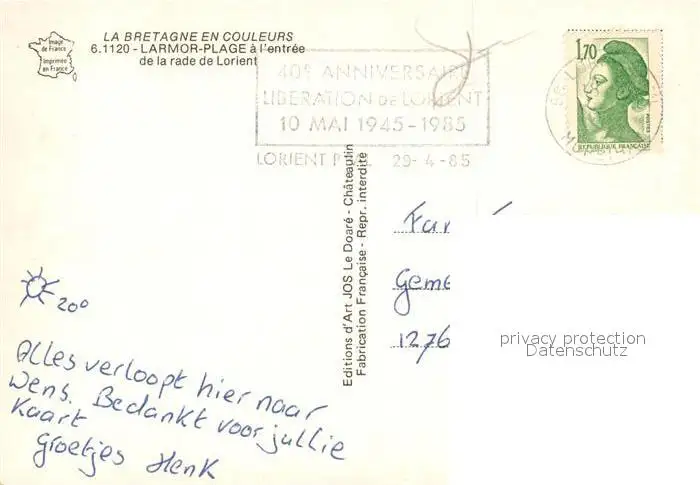 LA BRETAGNE EN COULEURS
6.1120 - LARMOR-PLAGE à l'entrée
de la rade de Lorient
Image
de France
Imprimée
en France
40e ANNIVERSAIRE
LIBERATION DE LORIENT
10 MAI 1945-1985
LORIENT 29-4-85
1,70
POSTES
REPUBLIQUE FRANÇAISE
MORBIHAN
Editions d'Art JOS Le Doaré - Châteaulin
Fabrication Française - Repr. interdite
20°
Alles verloopt hier naar
wens. Bedankt voor jullie
kaart
Groetjes Henk
Fam
Geme
1276
privacy protection
Datenschutz